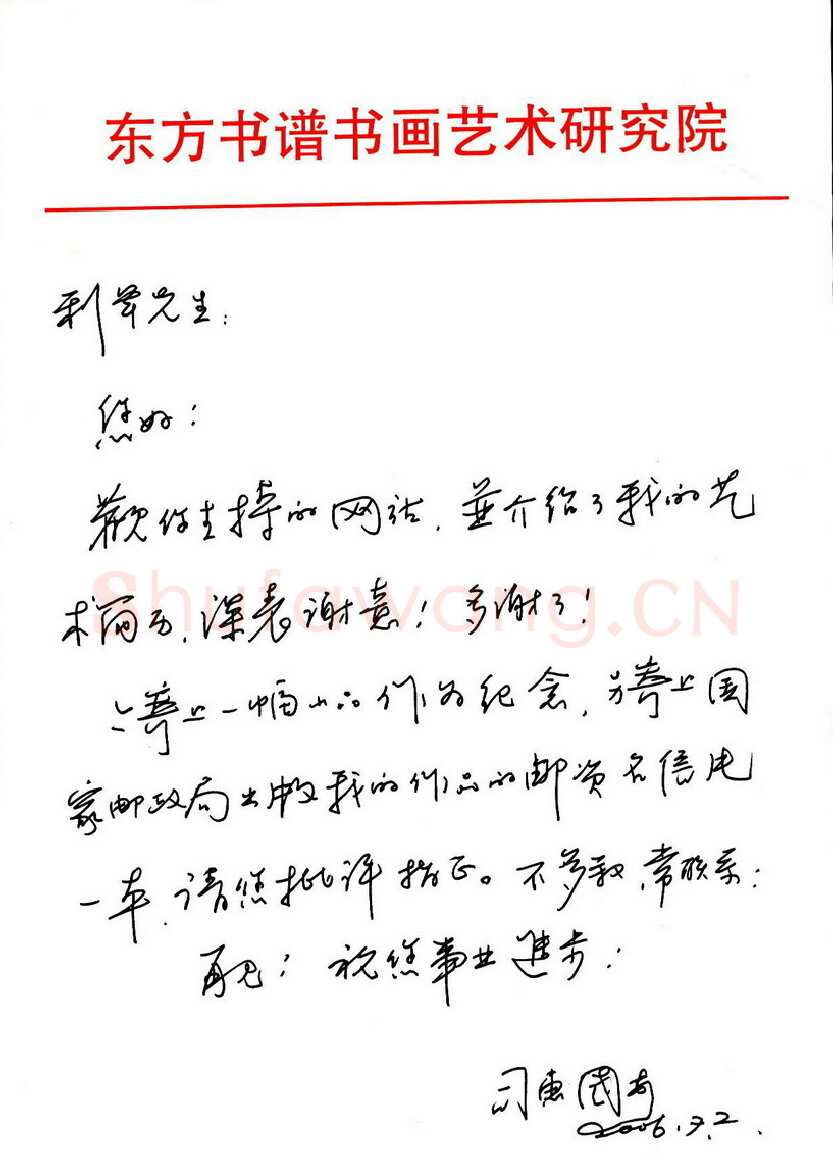 东方书谱书画艺术研究院
利先生：
您好：
你主持的网站，並介绍了我的艺
术简历，深表谢意！多谢了！
寄上一幅小品作为纪念，另寄上国
家邮政局出版我的作品的邮资名信片
一本，请您批评指正。不多叙，常联系：
再见！祝您事业进步！
司惠国
2006
Shufawang.CN